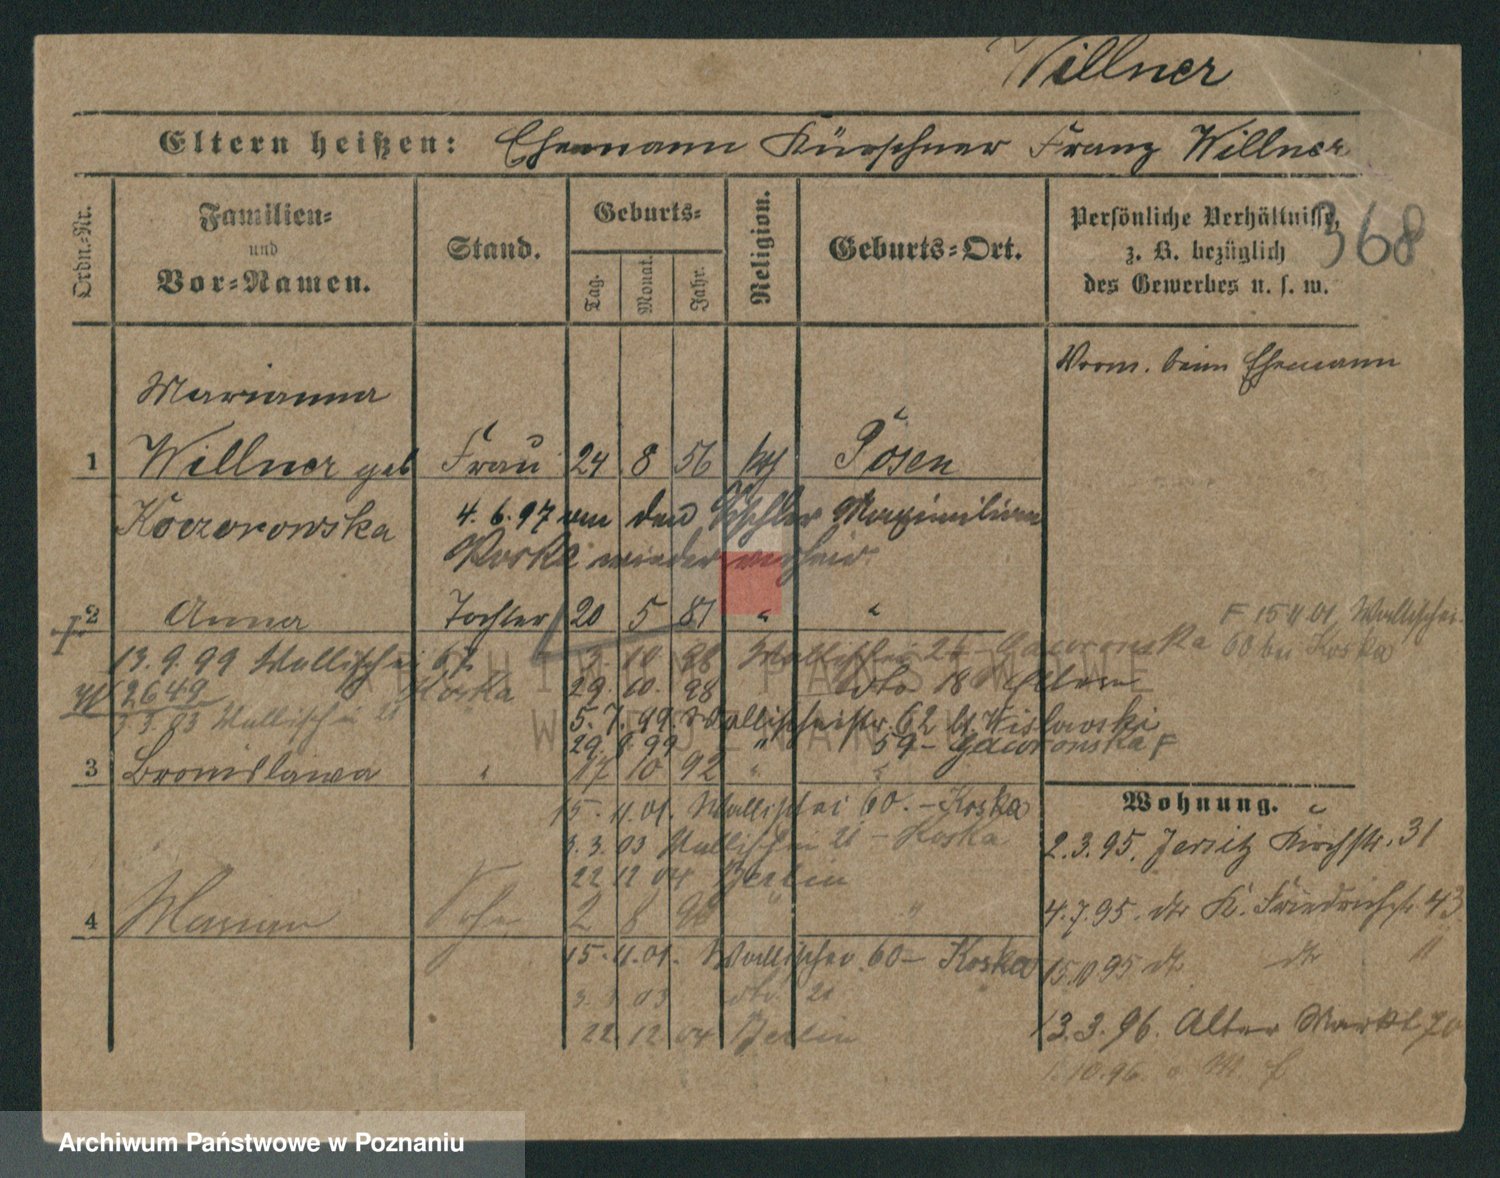 Willner
Eltern heißen: Ehemann Kürschner Franz Willner
Ordn.-Nr.
Familien- und Vor-Namen.
Stand.
Geburts-
Tag. Monat. Jahr.
Religion.
Geburts-Ort.
Persönliche Verhältnisse,
z. B. bezüglich
des Gewerbes u. s. w.
368
Vorm. beim Ehemann
Marianna
1 Willner geb Frau 24 8 56 Posen
Koczorowska 4.6.97 den Tischler Maximilian
Koska wieder verheir.
2 Anna Tochter 20 5 81 " "
F 15 11 01 Wallischei
60 bei Koska
13.9.99 Wallischei 67 3. 10 98 Wallischei 24 - Gacorowska
2649 Koska 29. 10. 98 dto 18 Eltern
3.3.03 Wallischei 21 5. 7. 99. Wallischeistr. 62 b/ Wislawski
29. 8. 99 " 59 - Gacorowska F
3 Bronislawa " 17 10 92 " "
15. 11. 01. Wallischei 60. - Koska
3. 3. 03 Wallischei 21 - Koska
22 12 04 Berlin
4 Marian Sohn 2 8 "
15. 11. 01. Wallischei 60 - Koska
3. 3. 03 dto. 21
22. 12 04 Berlin
Wohnung.
2.3.95. Jersitz Kirchstr. 31
4.7.95. dto K. Friedrichstr. 43
dto dto "
13.3.96. Alter Markt 70
1.10.96
ARCHIWUM PAŃSTWOWE
W POZNANIU
Archiwum Państwowe w Poznaniu